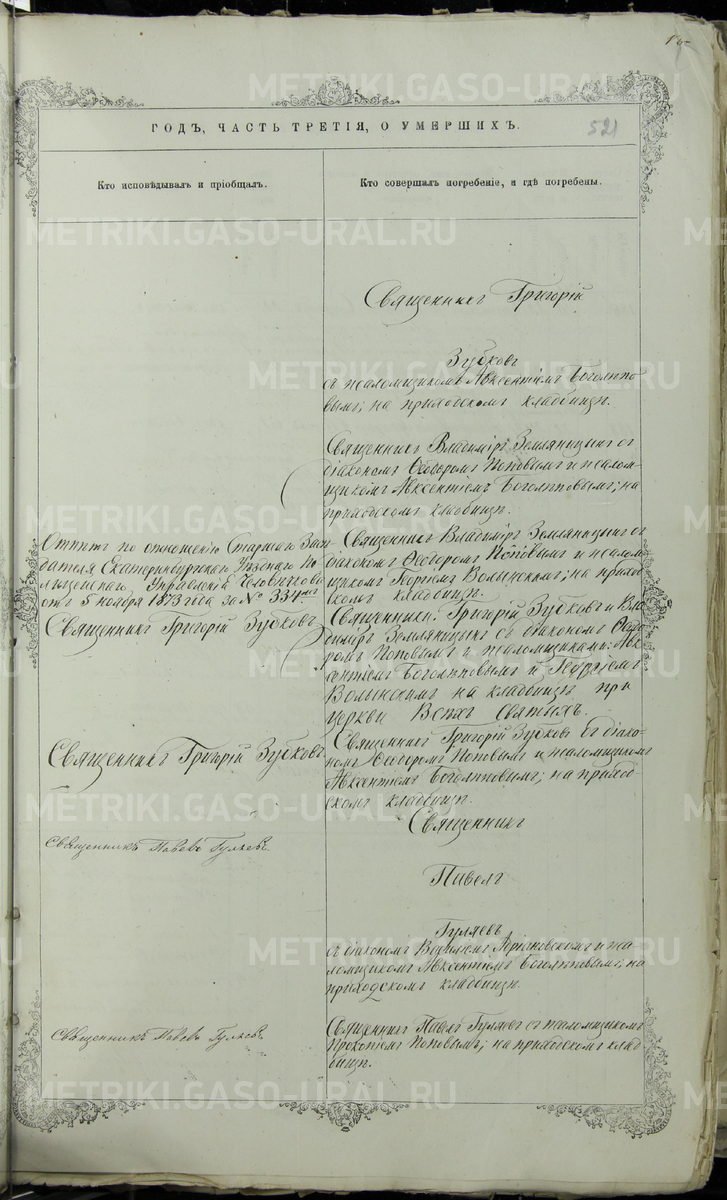 ГОДЪ, ЧАСТЬ ТРЕТІЯ, О УМЕРШИХЪ.
521
Кто исповѣдывалъ и пріобщалъ.
Кто совершалъ погребеніе, и гдѣ погребены.
Священникъ Григорій
Зубковъ
съ псаломщикомъ Авксентіемъ Боголѣпо-
вымъ; на приходскомъ кладбищѣ.
Священникъ Владиміръ Земляницынъ съ
діакономъ Ѳеодоромъ Поповымъ и псалом-
щикомъ Авксентіемъ Боголѣповымъ; на
приходскомъ кладбищѣ.
Отпѣтъ по отношенію Старшаго Засѣ-
дателя Екатеринбургскаго Уѣзднаго По-
лицейскаго Управленія
отъ 5 ноября 1873 года за № 334
Священникъ Владиміръ Земляницынъ съ
діакономъ Ѳеодоромъ Поповымъ и псалом-
щикомъ Георгіемъ Волынскимъ; на приход-
скомъ кладбищѣ.
Священникъ Григорій Зубковъ
Священники: Григорій Зубковъ и Вла-
диміръ Земляницынъ съ діакономъ Ѳеодо-
ромъ Поповымъ и псаломщиками: Авк-
сентіемъ Боголѣповымъ и Георгіемъ
Волынскимъ на кладбищѣ при
церкви Всѣхъ Святыхъ.
Священникъ Григорій Зубковъ
Священникъ Григорій Зубковъ съ діако-
номъ Ѳеодоромъ Поповымъ и псаломщикомъ
Авксентіемъ Боголѣповымъ; на приход-
скомъ кладбищѣ.
Священникъ Павелъ Гуляевъ.
Священникъ
Павелъ
Гуляевъ
съ діакономъ Адріановскимъ и пса-
ломщикомъ Авксентіемъ Боголѣповымъ; на
приходскомъ кладбищѣ.
Священникъ Павелъ Гуляевъ
Священникъ Павелъ Гуляевъ съ псаломщикомъ
Прокопіемъ Поповымъ; на приходскомъ клад-
бищѣ.
METRIKI.GASO-URAL.RU